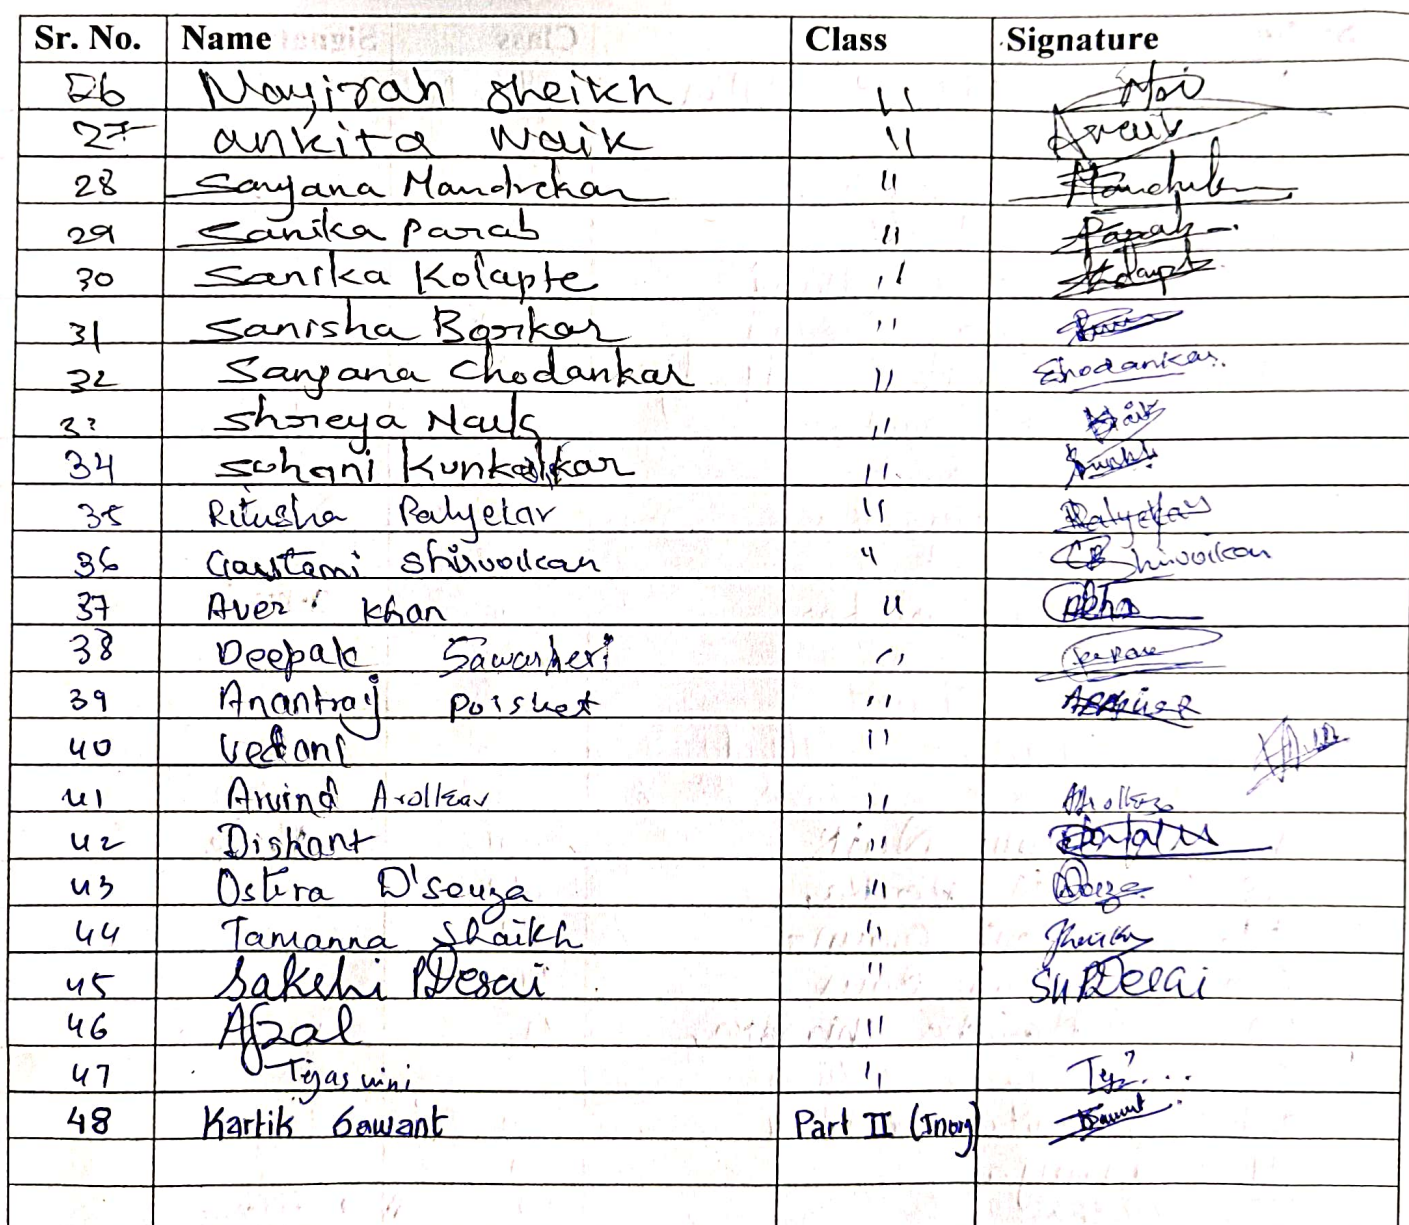 Sr. No. Name Class Signature
26 Nayirah Sheikh 11
27 ankita Naik 11
28 Sanjana Mandrekar 11
29 Sanika Parab 11 Parab
30 Sanika Kolapte 11
31 Sanisha Borikar 11
32 Sanjana Chodankar 11 Chodankar.
33 Shreya Naik 11 Naik
34 Suhani Kunkalkar 11
35 Ritusha Palyekar 11 Palyekar
36 Gautami Shirvoikar 11 Shirvoikar
37 Aver Khan 11
38 Deepak 11
39 Anantraj 11
40 Vedant 11
41 Arvind Arolkar 11 Arolkar
42 Diskant 11
43 Ostira D'souza 11
44 Tamanna Shaikh 11 Shaikh
45 Sakshi Desai 11 Desai
46 Afzal 11
47 Tejaswini 11
48 Kartik Sawant Part II (Inorg) Sawant